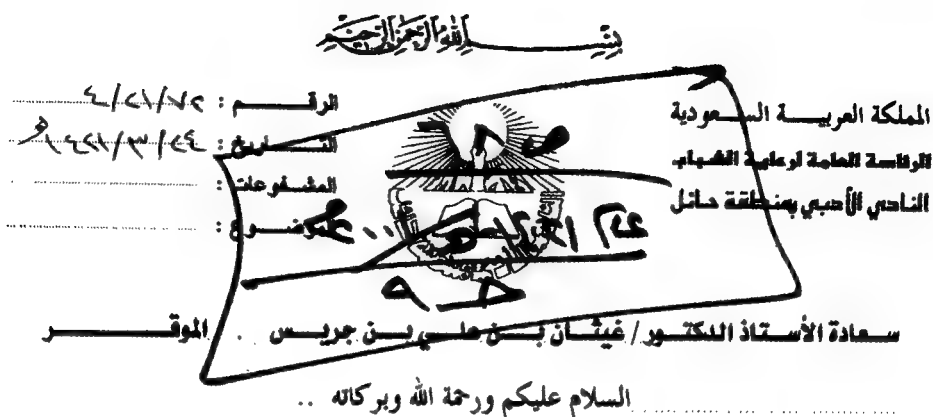 بسم الله الرحمن الرحيم
المملكة العربية السعودية
الرئاسة العامة لرعاية الشباب
النادي الأدبي بمنطقة حائل
الرقـــم : ٤/٢١/٧٢
التـــاريخ : ٢٤/٣/١٤٢١هـ
المشفوعات :
الموضـوع :
سعادة الأستاذ الدكتور / غيثان بن علي بن جريس . الموقر
السلام عليكم ورحمة الله وبركاته ..